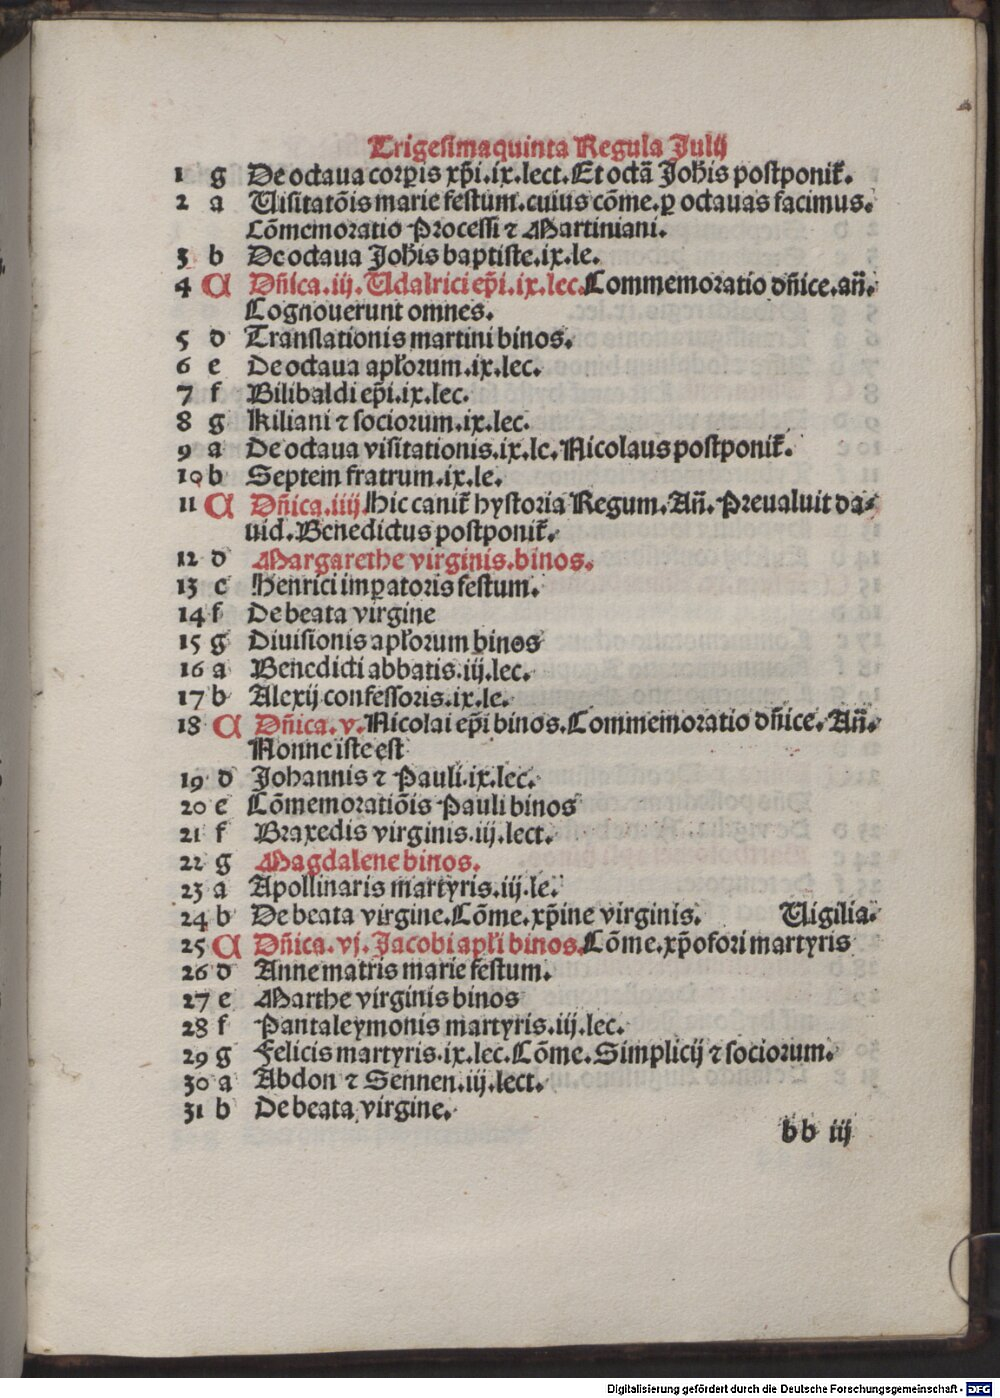 Trigesimaquinta Regula Julij
1 g De octaua corꝑis xp̄i.ix.lect.Et octā Joh̄is postponit̄.
2 a Uisitatōis marie festum.cuius cōme.ꝑ octauas facimus.
Cōmemoratio Processi ⁊ Martiniani.
3 b De octaua Joh̄is baptiste.ix.le.
4 A Dn̄ica.iij.Udalrici ep̄i.ix.lec.Commemoratio dn̄ice.an̄.
Cognouerunt omnes.
5 d Translationis martini binos.
6 e De octaua apl'orum.ix.lec.
7 f Bilibaldi ep̄i.ix.lec.
8 g Kiliani ⁊ sociorum.ix.lec.
9 a De octaua visitationis.ix.lc.Nicolaus postponit̄.
10 b Septem fratrum.ix.le.
11 A Dn̄ica.iiij.Hic canit̄ hystoria Regum.An̄.Preualuit da-
uid.Benedictus postponit̄.
12 d Margarethe virginis.binos.
13 e Henrici imꝑatoris festum.
14 f De beata virgine
15 g Diuisionis apl'orum binos
16 a Benedicti abbatis.iij.lec.
17 b Alexij confessoris.ix.le.
18 A Dn̄ica.v.Nicolai ep̄i binos.Commemoratio dn̄ice.An̄.
Nonne iste est
19 d Johannis ⁊ Pauli.ix.lec.
20 e Cōmemoratiōis Pauli binos
21 f Braxedis virginis.iij.lect.
22 g Magdalene binos.
23 a Apollinaris martyris.iij.le.
24 b De beata virgine.Cōme.xp̄ine virginis. Uigilia.
25 A Dn̄ica.vj.Jacobi apl'i binos.Cōme.xp̄ofori martyris
26 d Anne matris marie festum.
27 e Marthe virginis binos
28 f Pantaleymonis martyris.iij.lec.
29 g Felicis martyris.ix.lec.Cōme.Simplicij ⁊ sociorum.
30 a Abdon ⁊ Sennen.iij.lect.
31 b De beata virgine.
bb iij
Digitalisierung gefördert durch die Deutsche Forschungsgemeinschaft - DFG